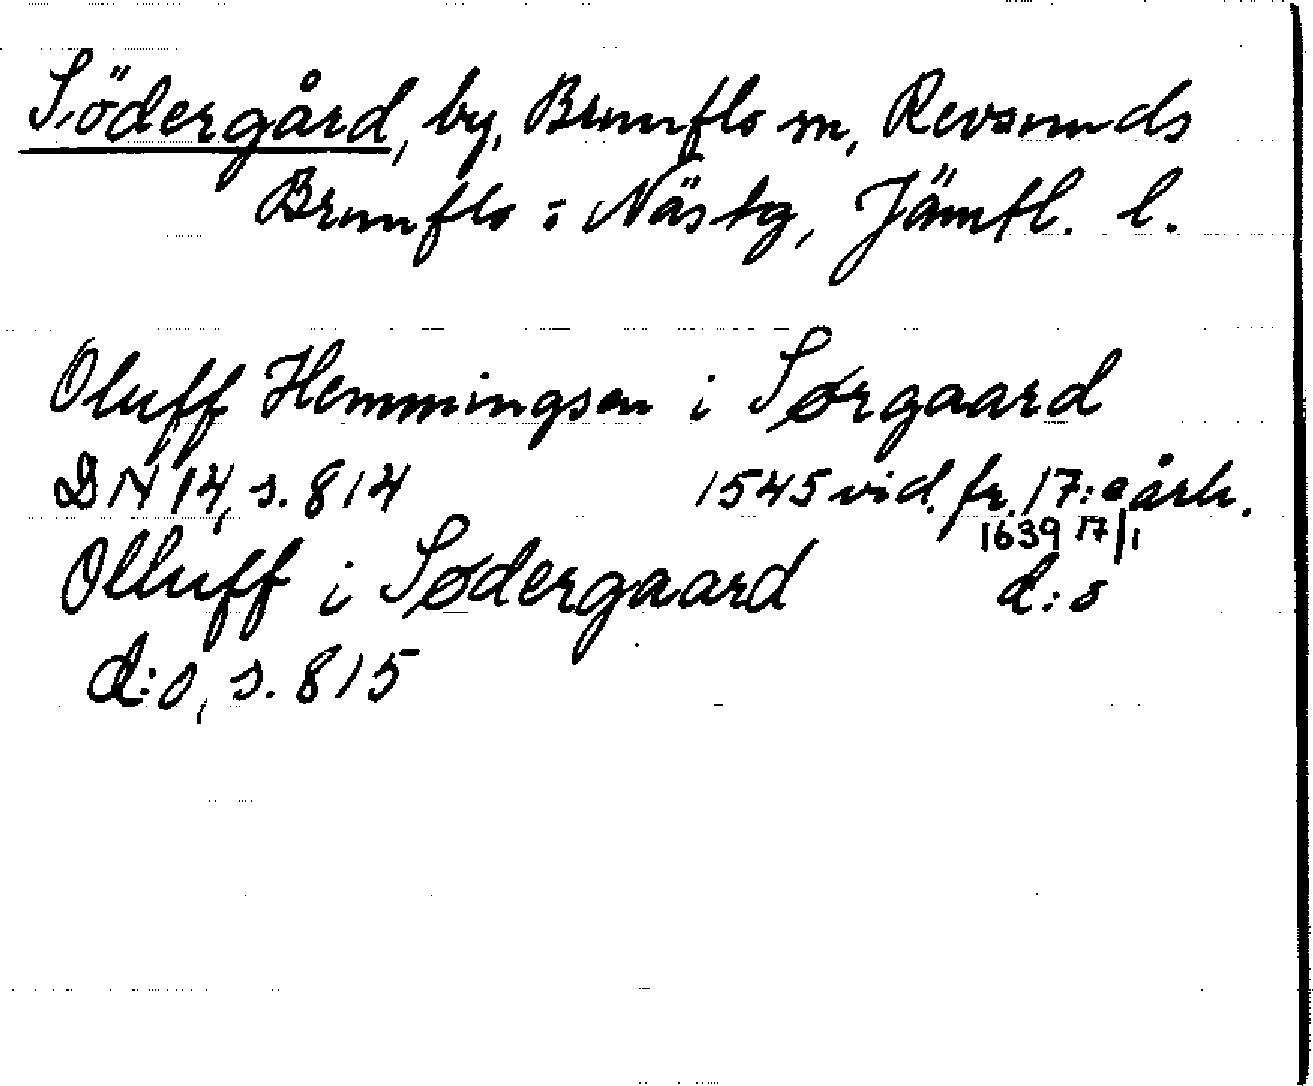 Södergård, by, Brunflo sn, Revsunds
Brunflo o Näs tg, Jämtl. l.
Oluff Hemmingsen i Sørgaard
DN 14, s. 814 1545 vid. fr. 17:e årh.
1639 17/1
Olluff i Sødergaard d:o
d:o, s. 815